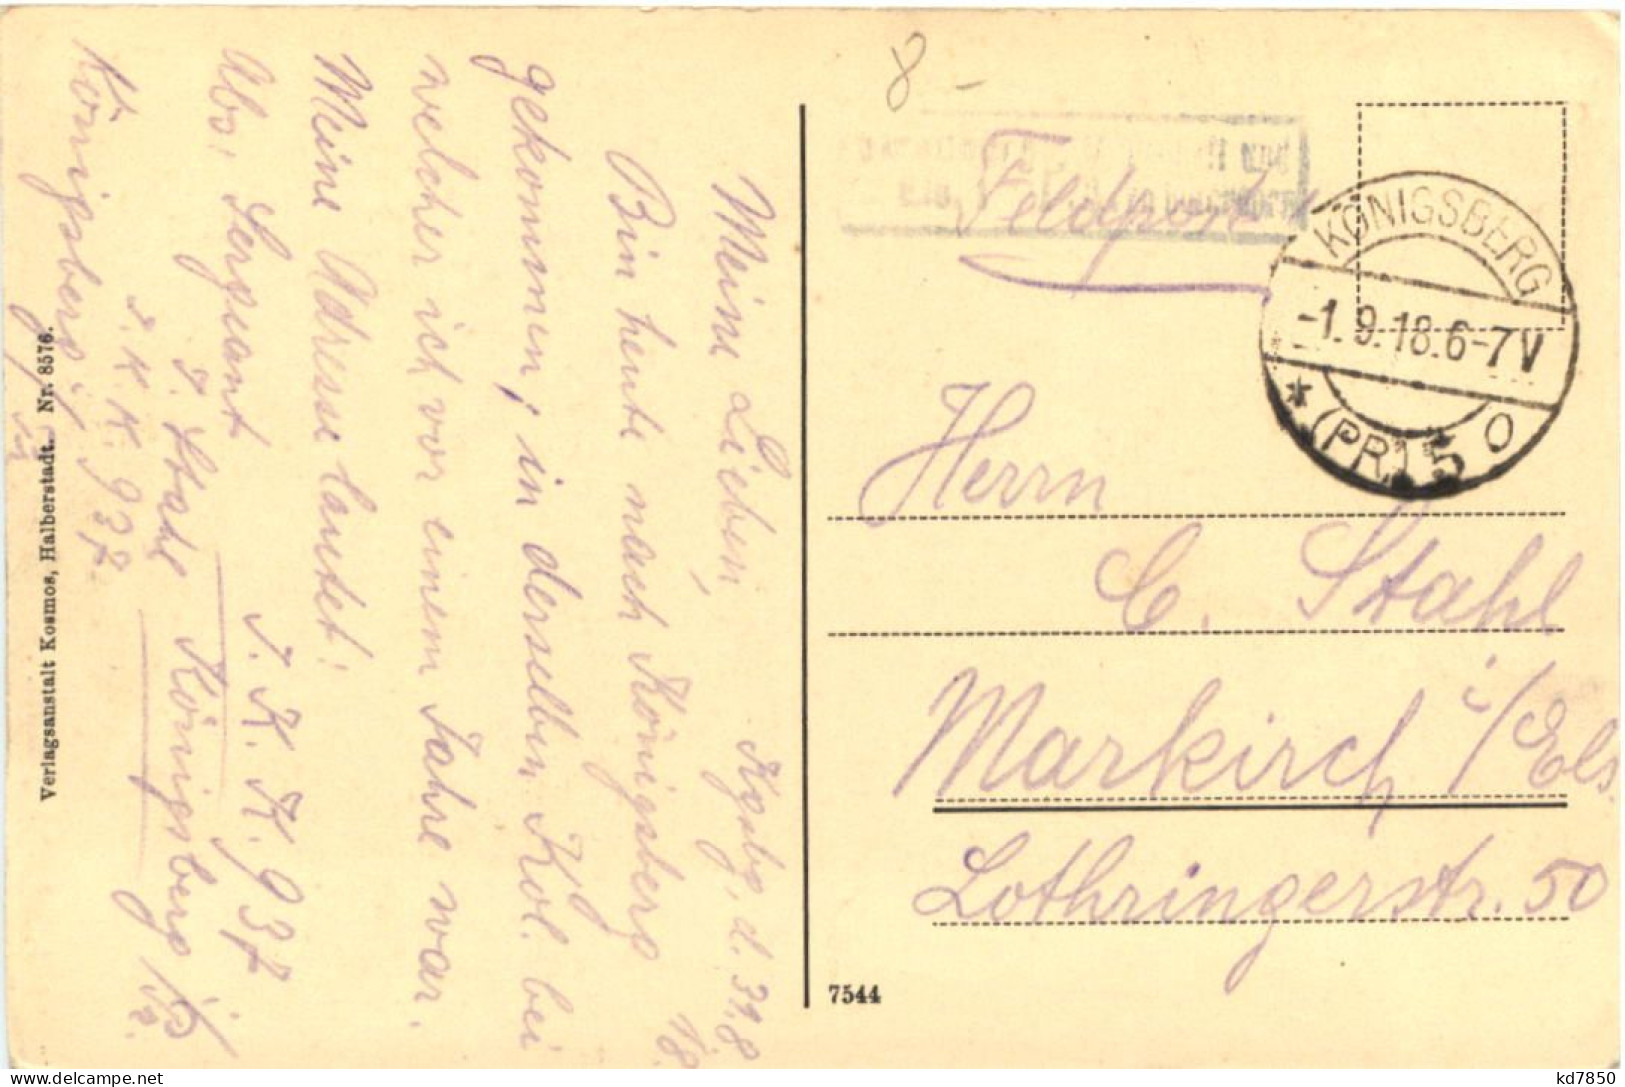 Kgsbg, d. 31.8.
18.
Meine Lieben,
Bin heute nach Königsberg
gekommen, in derselben Kol. bei
welcher ich vor einem Jahre war.
Meine Adresse lautet:
Abs. Sergeant
Stahl
K. K. 937
Königsberg i/Pr.
K. K. 937.
Königsberg i/
Verlagsanstalt Kosmos, Halberstadt. Nr. 8576.
8 -
Feldpost
KÖNIGSBERG
-1.9.18.6-7V
* (PR) 5 o
Herrn
C. Stahl
Markirch i/Els.
Lothringerstr. 50
7544
kd7850